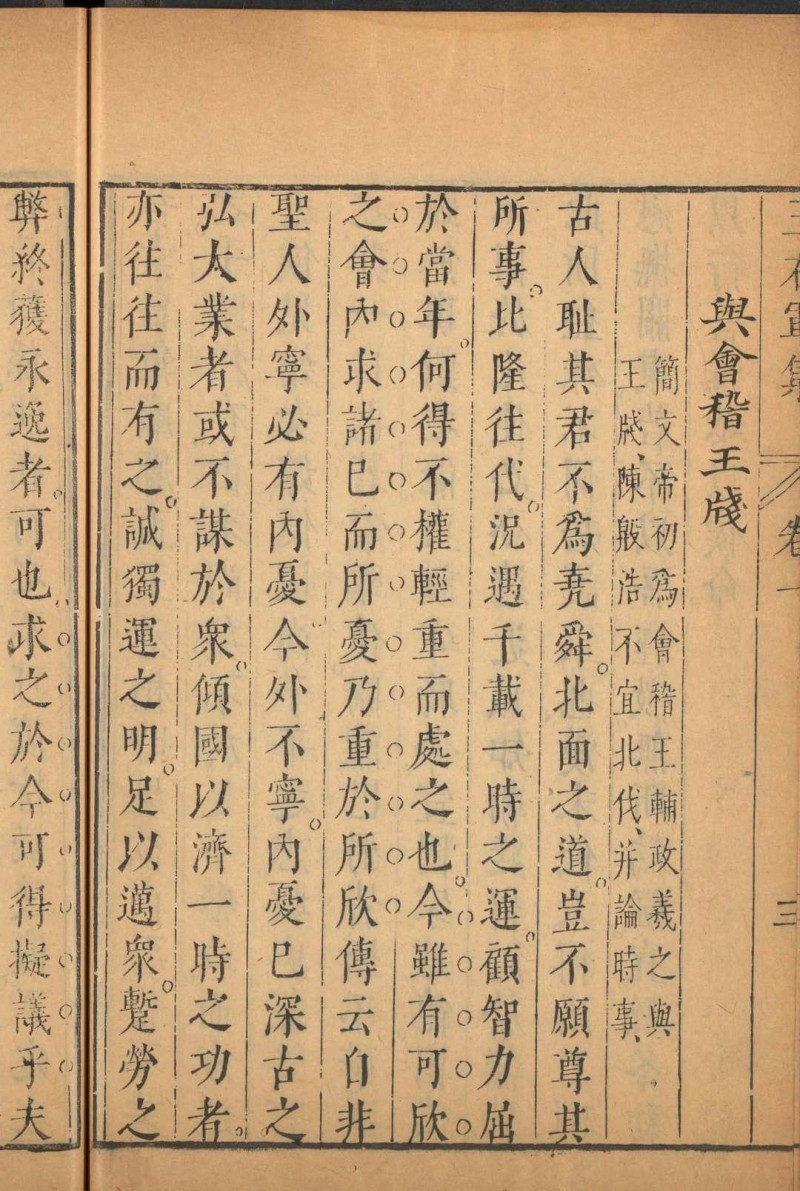 與會稽王牋
簡文帝初爲會稽王輔政羲之與
王牋、陳殷浩不宜北伐、并論時事、
古人耻其君不爲堯舜。北面之道。豈不願尊其
所事。比隆往代。況遇千載一時之運。顧智力屈
於當年。何得不權輕重而處之也。今雖有可欣
之會内求諸已而所憂乃重於所欣傳云自非
聖人外寧必有内憂今外不寧。内憂已深古之
弘大業者或不謀於衆。傾國以濟一時之功者。
亦往往而有之。誠獨運之明。足以邁衆。蹔勞之
弊終獲永逸者。可也求之於今可得擬議乎夫